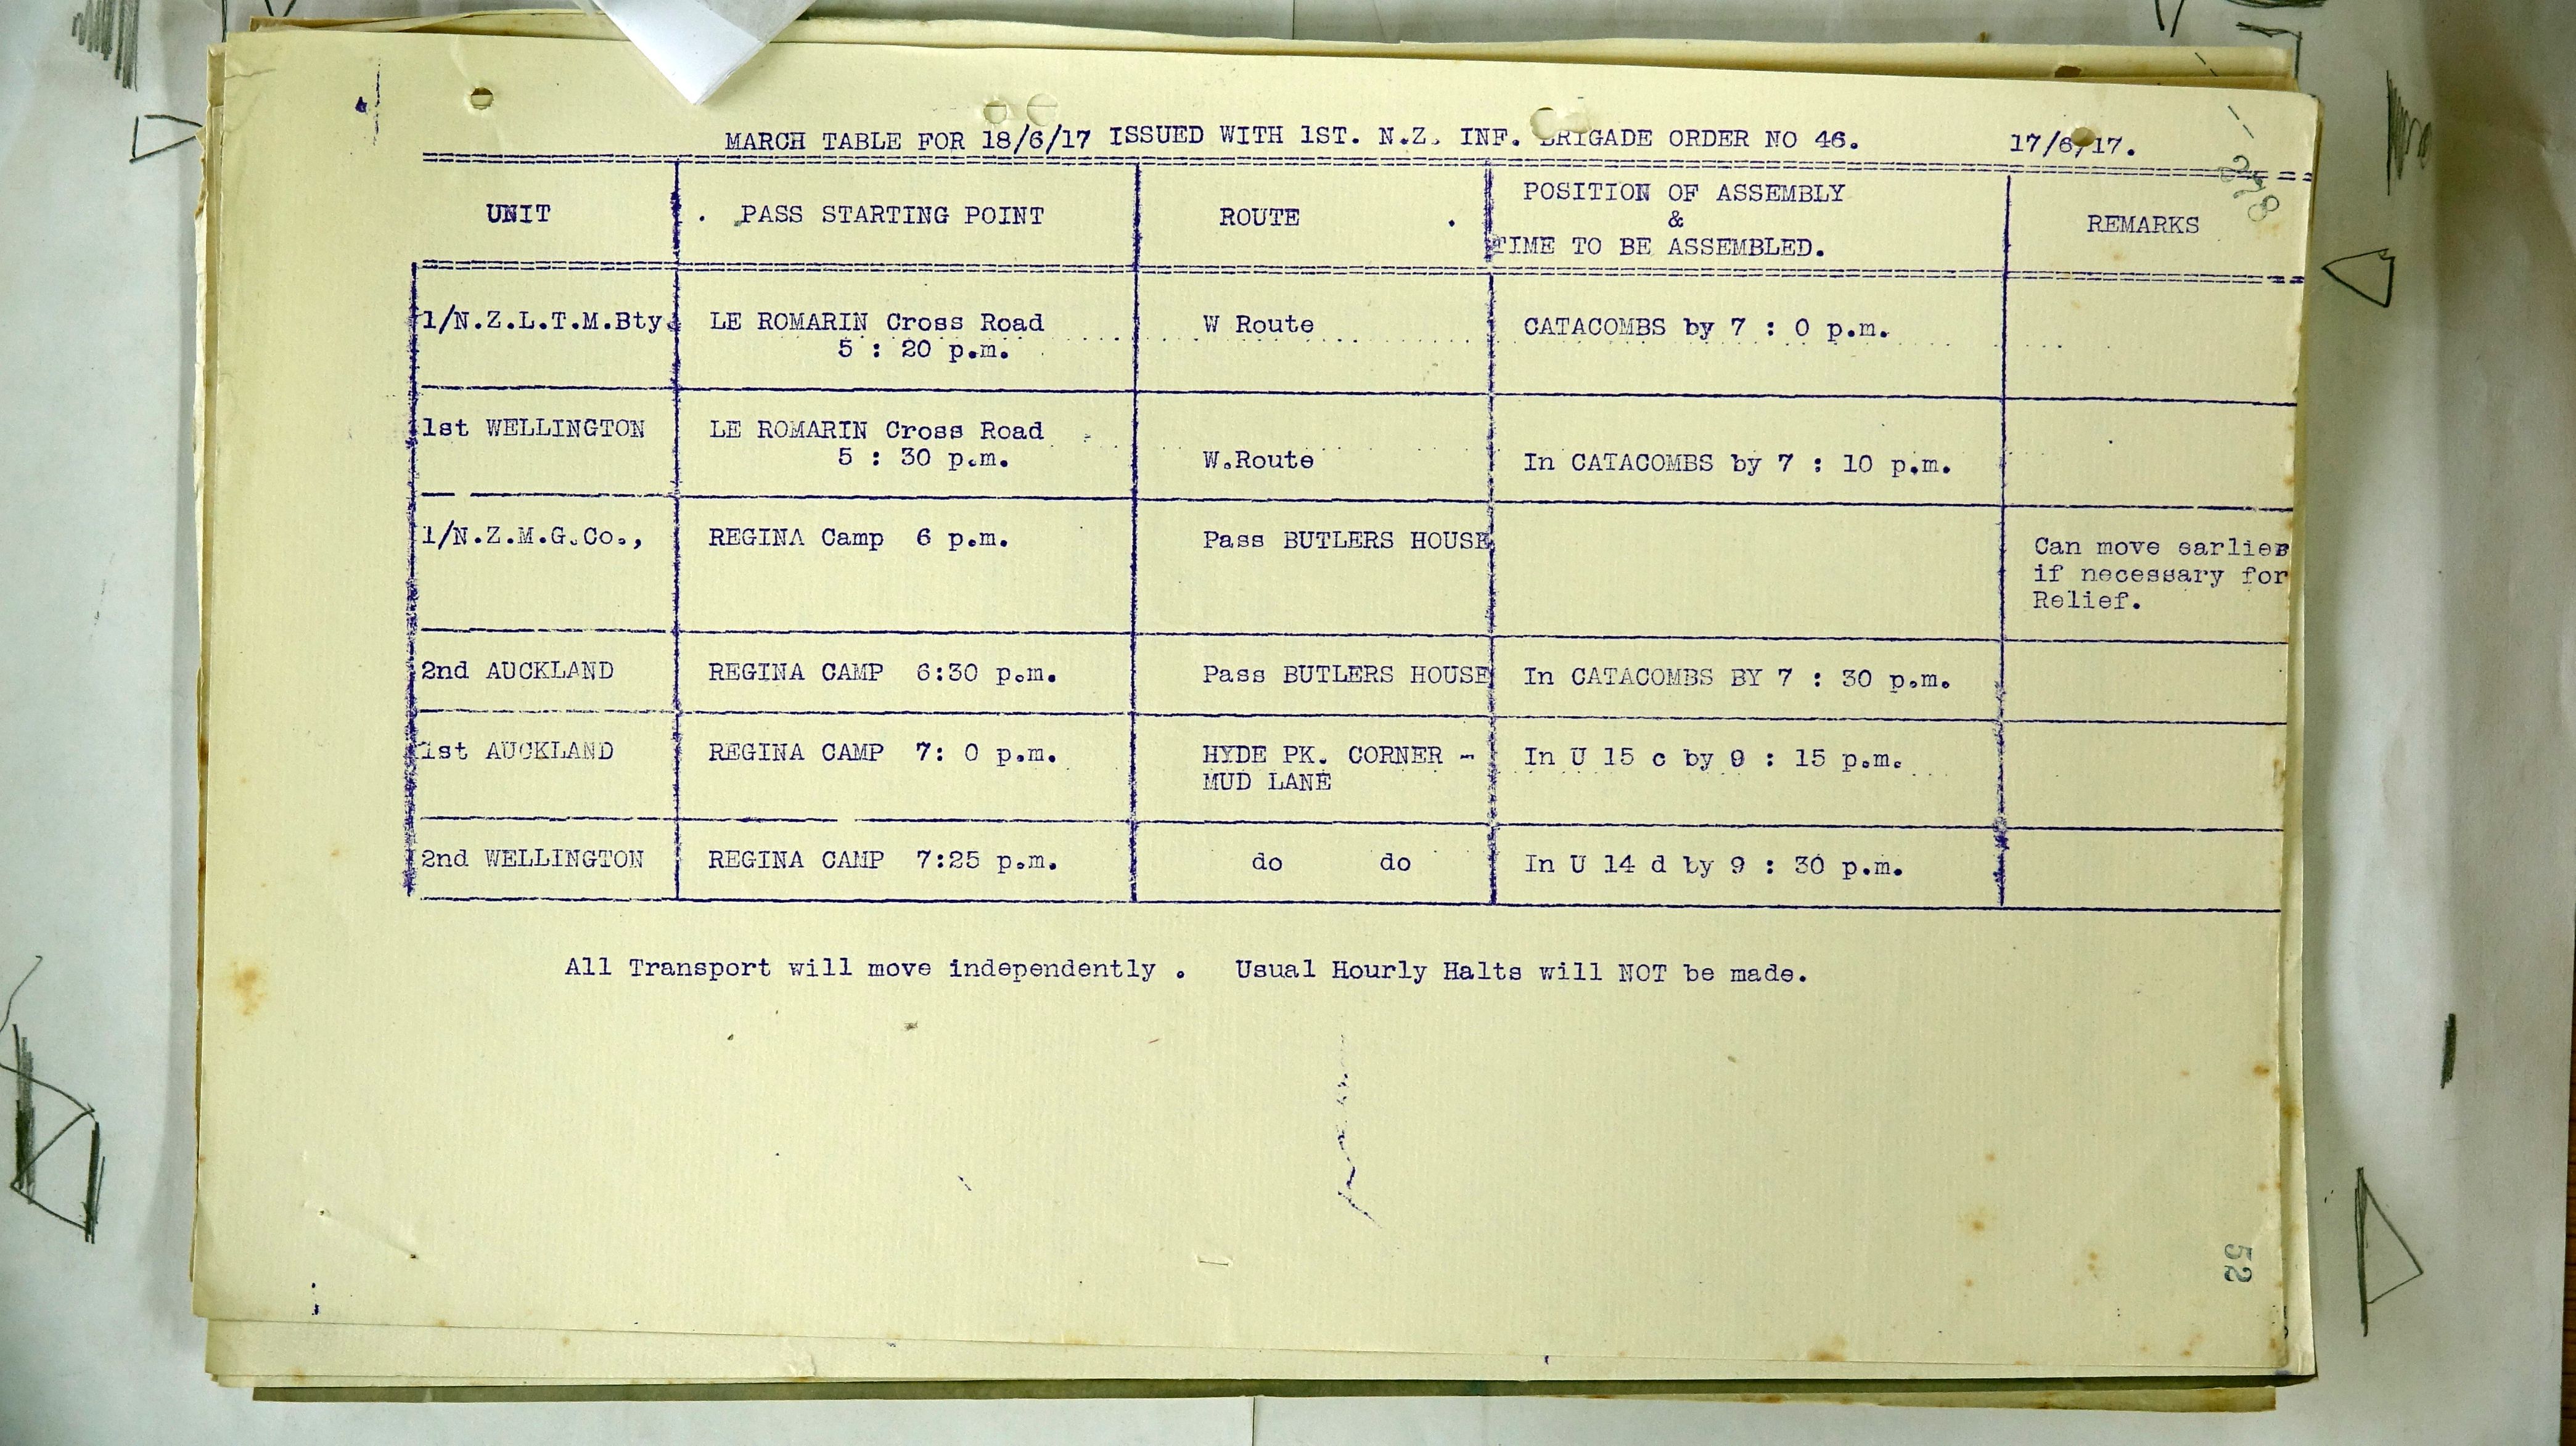 MARCH TABLE FOR 18/6/17 ISSUED WITH 1ST. N.Z. INF. BRIGADE ORDER NO 46. 17/6/17.
278
UNIT PASS STARTING POINT ROUTE POSITION OF ASSEMBLY & TIME TO BE ASSEMBLED. REMARKS
1/N.Z.L.T.M.Bty. LE ROMARIN Cross Road W Route CATACOMBS by 7 : 0 p.m.
5 : 20 p.m.
1st WELLINGTON LE ROMARIN Cross Road
5 : 30 p.m. W.Route In CATACOMBS by 7 : 10 p.m.
1/N.Z.M.G.Co., REGINA Camp 6 p.m. Pass BUTLERS HOUSE Can move earlier
if necessary for
Relief.
2nd AUCKLAND REGINA CAMP 6:30 p.m. Pass BUTLERS HOUSE In CATACOMBS BY 7 : 30 p.m.
1st AUCKLAND REGINA CAMP 7: 0 p.m. HYDE PK. CORNER - In U 15 c by 9 : 15 p.m.
MUD LANE
2nd WELLINGTON REGINA CAMP 7:25 p.m. do do In U 14 d by 9 : 30 p.m.
All Transport will move independently . Usual Hourly Halts will NOT be made.
52